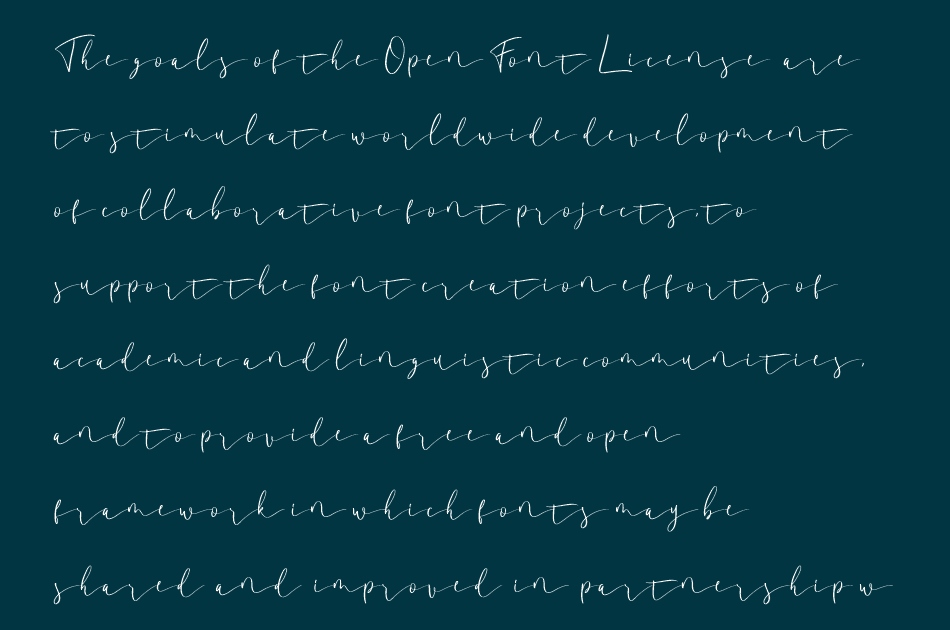 The goals of the Open Font License are
to stimulate worldwide development
of collaborative font projects, to
support the font creation efforts of
academic and linguistic communities,
and to provide a free and open
framework in which fonts may be
shared and improved in partnership w